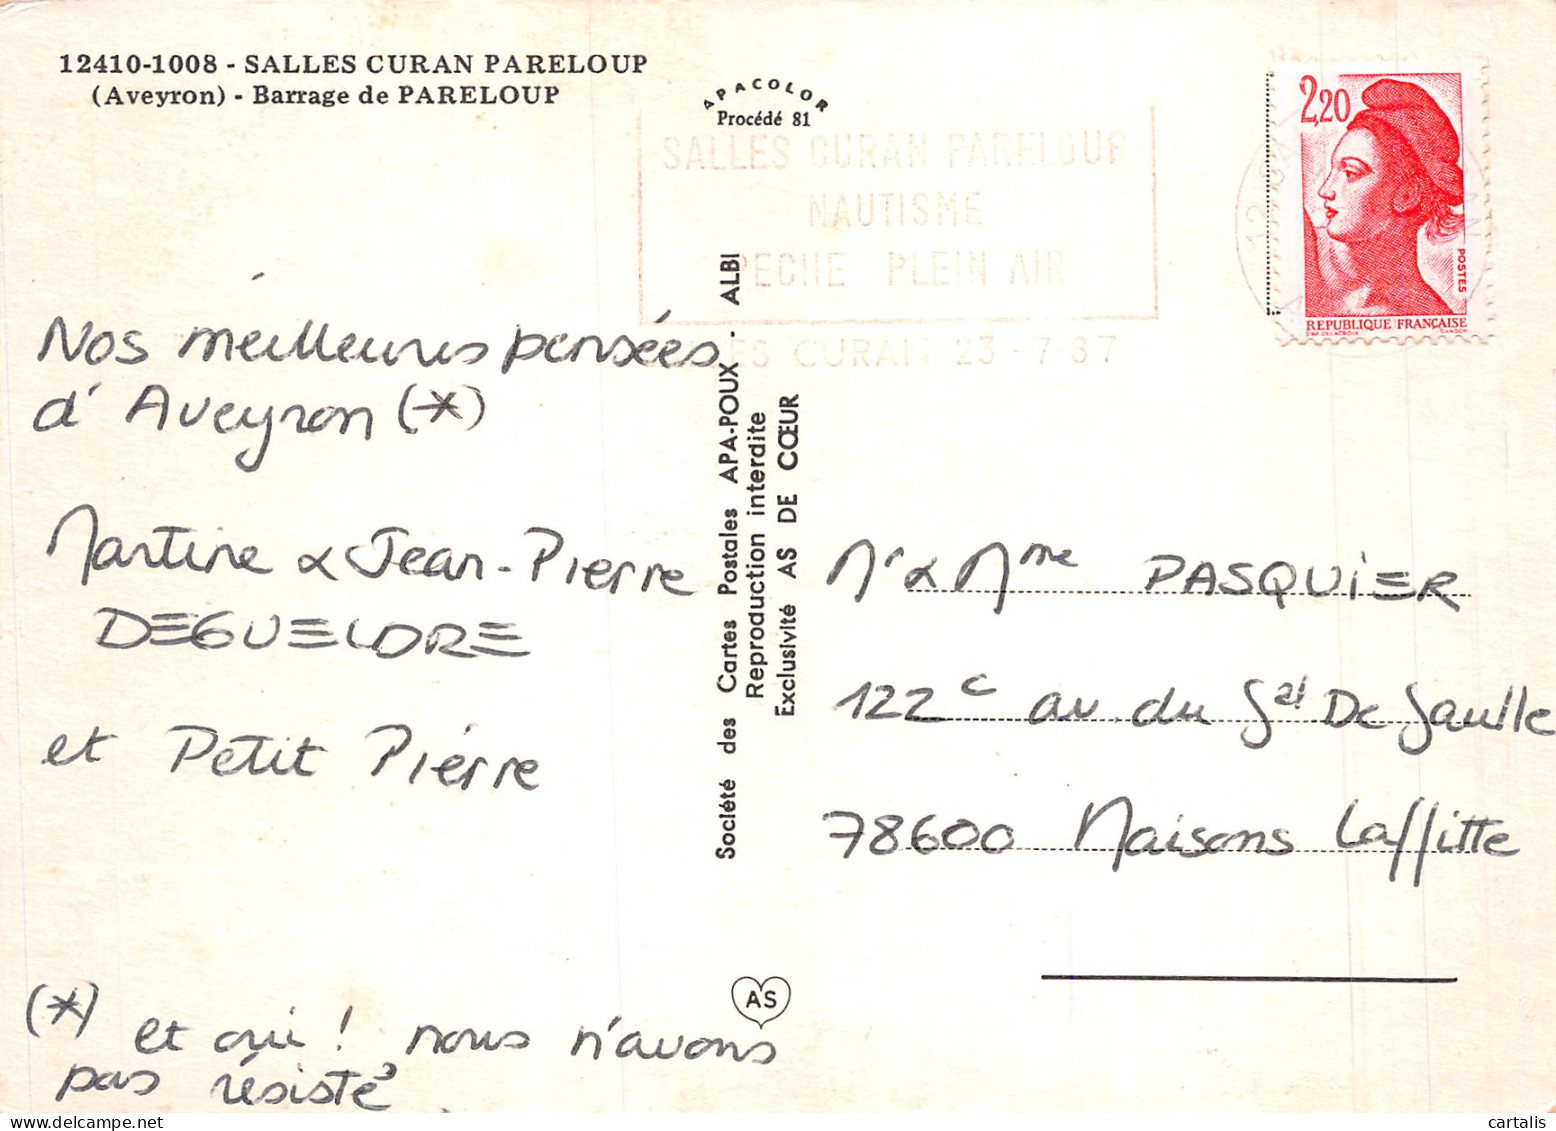 12410-1008 - SALLES CURAN PARELOUP
(Aveyron) - Barrage de PARELOUP
APACOLOR
Procédé 81
SALLES CURAN PARELOUP
NAUTISME
PECHE PLEIN AIR
SALLES CURAN 23-7-87
2,20
POSTES
REPUBLIQUE FRANÇAISE
D'AP. DELACROIX GANDON
Nos meilleures pensées
d'Aveyron (*)
Martine & Jean-Pierre
DEGUELDRE
et Petit Pierre
(*) et oui ! nous n'avons
pas résisté
Société des Cartes Postales APA-POUX - ALBI
Reproduction interdite
Exclusivité AS DE CŒUR
AS
Mr & Mme PASQUIER
122 c av. du Gal De Gaulle
78600 Maisons Laffitte
cartalis